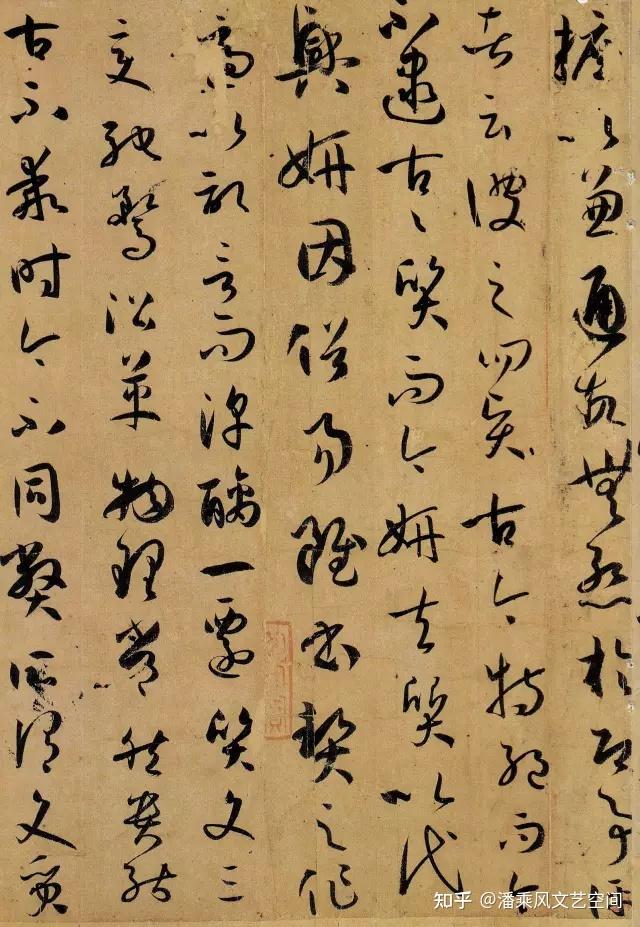 摭以兼通故無慙於即事評
者云彼之四賢古今特絕而今
不逮古〻質而今妍夫質以代
興妍因俗易雖書契之作
適以記言而淳醨一遷質文三
變馳騖沿革物理常然貴能
古不乖時今不同弊所謂文質
知乎 @潘乘风文艺空间